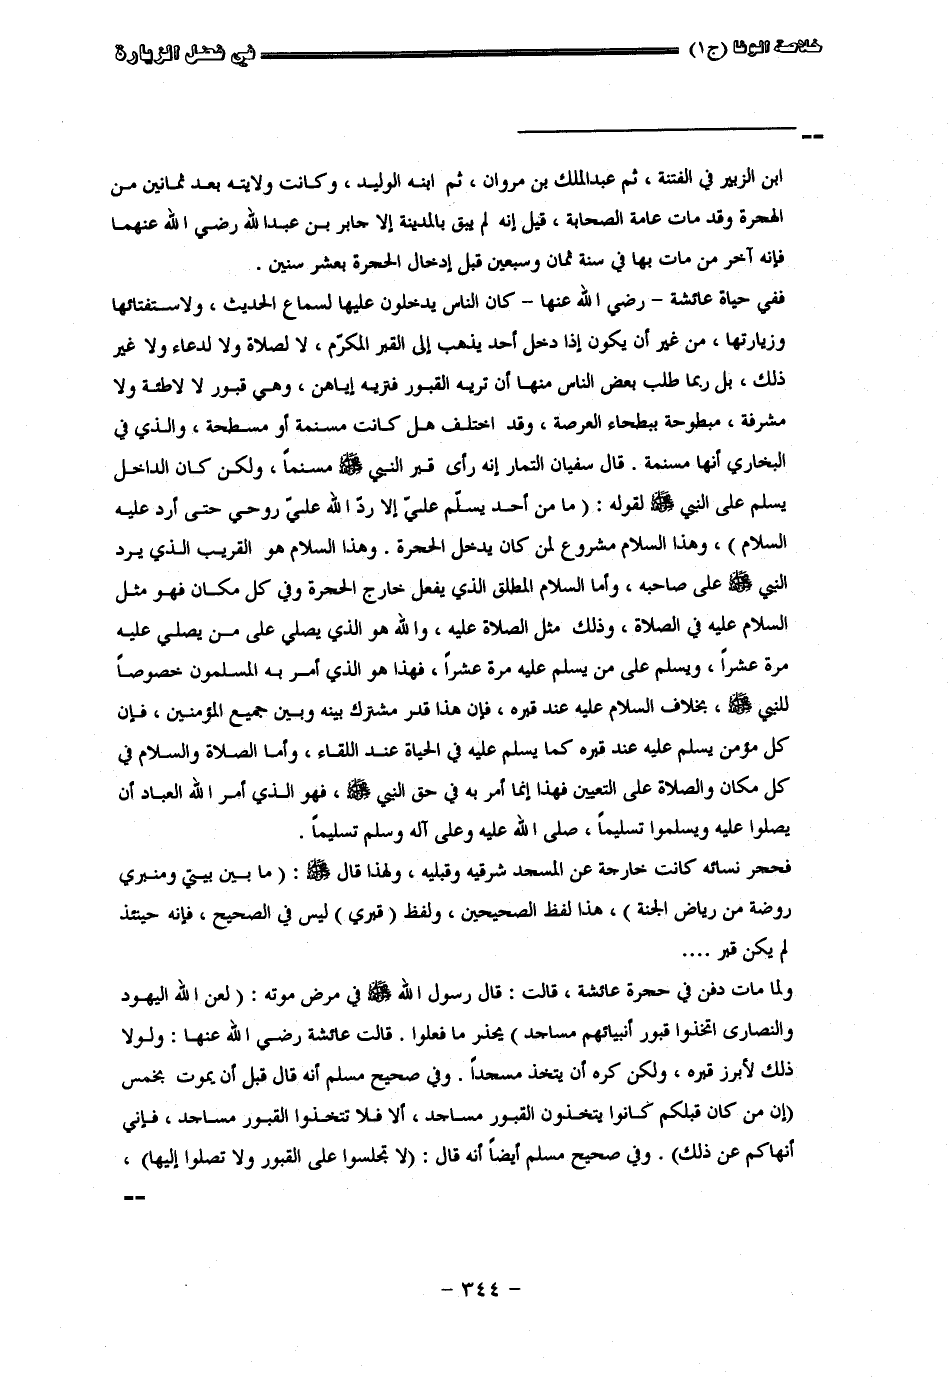 خلاصة الوفا (ج١) في فضل الزيارة
--
ابن الزبير في الفتنة ، ثم عبدالملك بن مروان ، ثم ابنه الوليد ، وكانت ولايته بعد ثمانين من
الهجرة وقد مات عامة الصحابة ، قيل إنه لم يبق بالمدينة إلا جابر بن عبدالله رضي الله عنهما
فإنه آخر من مات بها في سنة ثمان وسبعين قبل إدخال الحجرة بعشر سنين .
ففي حياة عائشة – رضي الله عنها – كان الناس يدخلون عليها لسماع الحديث ، ولاستفتائها
وزيارتها ، من غير أن يكون إذا دخل أحد يذهب إلى القبر المكرّم ، لا لصلاة ولا لدعاء ولا غير
ذلك ، بل ربما طلب بعض الناس منها أن تريه القبور فتريه إياهن ، وهي قبور لا لاطئة ولا
مشرفة ، مبطوحة ببطحاء العرصة ، وقد اختلف هل كانت مسنمة أو مسطحة ، والذي في
البخاري أنها مسنمة . قال سفيان التمار إنه رأى قبر النبي ﷺ مسنماً ، ولكن كان الداخل
يسلم على النبي ﷺ لقوله : ( ما من أحد يسلّم عليّ إلا ردّ الله عليّ روحي حتى أرد عليه
السلام ) ، وهذا السلام مشروع لمن كان يدخل الحجرة . وهذا السلام هو القريب الذي يرد
النبي ﷺ على صاحبه ، وأما السلام المطلق الذي يفعل خارج الحجرة وفي كل مكان فهو مثل
السلام عليه في الصلاة ، وذلك مثل الصلاة عليه ، والله هو الذي يصلي على من يصلي عليه
مرة عشراً ، ويسلم على من يسلم عليه مرة عشراً ، فهذا هو الذي أمر به المسلمون خصوصاً
للنبي ﷺ ، بخلاف السلام عليه عند قبره ، فإن هذا قدر مشترك بينه وبين جميع المؤمنين ، فإن
كل مؤمن يسلم عليه عند قبره كما يسلم عليه في الحياة عند اللقاء ، وأما الصلاة والسلام في
كل مكان والصلاة على التعيين فهذا إنما أمر به في حق النبي ﷺ ، فهو الذي أمر الله العباد أن
يصلوا عليه ويسلموا تسليماً ، صلى الله عليه وعلى آله وسلم تسليماً .
فحجر نسائه كانت خارجة عن المسجد شرقيه وقبليه ، ولهذا قال ﷺ : ( ما بين بيتي ومنبري
روضة من رياض الجنة ) ، هذا لفظ الصحيحين ، ولفظ ( قبري ) ليس في الصحيح ، فإنه حينئذ
لم يكن قبر ....
ولما مات دفن في حجرة عائشة ، قالت : قال رسول الله ﷺ في مرض موته : ( لعن الله اليهود
والنصارى اتخذوا قبور أنبيائهم مساجد ) يحذر ما فعلوا . قالت عائشة رضي الله عنها : ولولا
ذلك لأبرز قبره ، ولكن كره أن يتخذ مسجداً . وفي صحيح مسلم أنه قال قبل أن يموت بخمس
(إن من كان قبلكم كانوا يتخذون القبور مساجد ، ألا فلا تتخذوا القبور مساجد ، فإني
أنهاكم عن ذلك) . وفي صحيح مسلم أيضاً أنه قال : (لا تجلسوا على القبور ولا تصلوا إليها) ،
--
- ٣٤٤ -